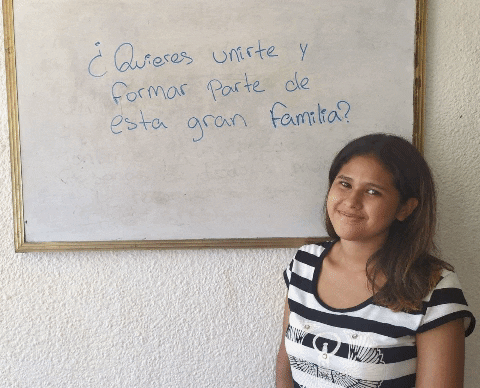 ¿Quieres unirte y
formar parte de
esta gran familia?